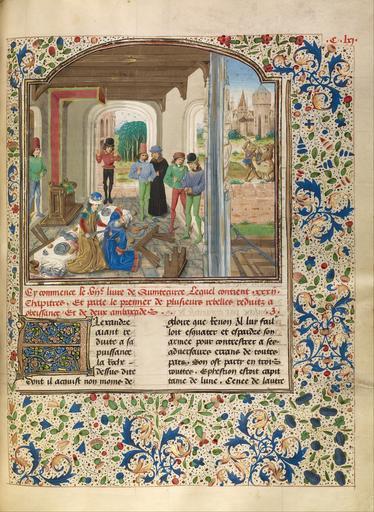 C. lxj.
Cy commence le huit.e liure de Quinte curce Lequel contient .xxxij.
Chapitres. Et parle le premier de plusieurs rebelles reduitz a
obeissance Et de deux ambaxades. S. 3.
Alexandre
aiant re
duite a sa
puissance
la roche
dessus dite
dont il acquist non moins de
gloire que renon Il lui fail
loit esuoier et espardre son
armee pour contrester a ses
aduersaires errans de toutes
pars. Son ost party en trois
routtes. Ephestion estoit capi
taine de lune. Cene de lautre